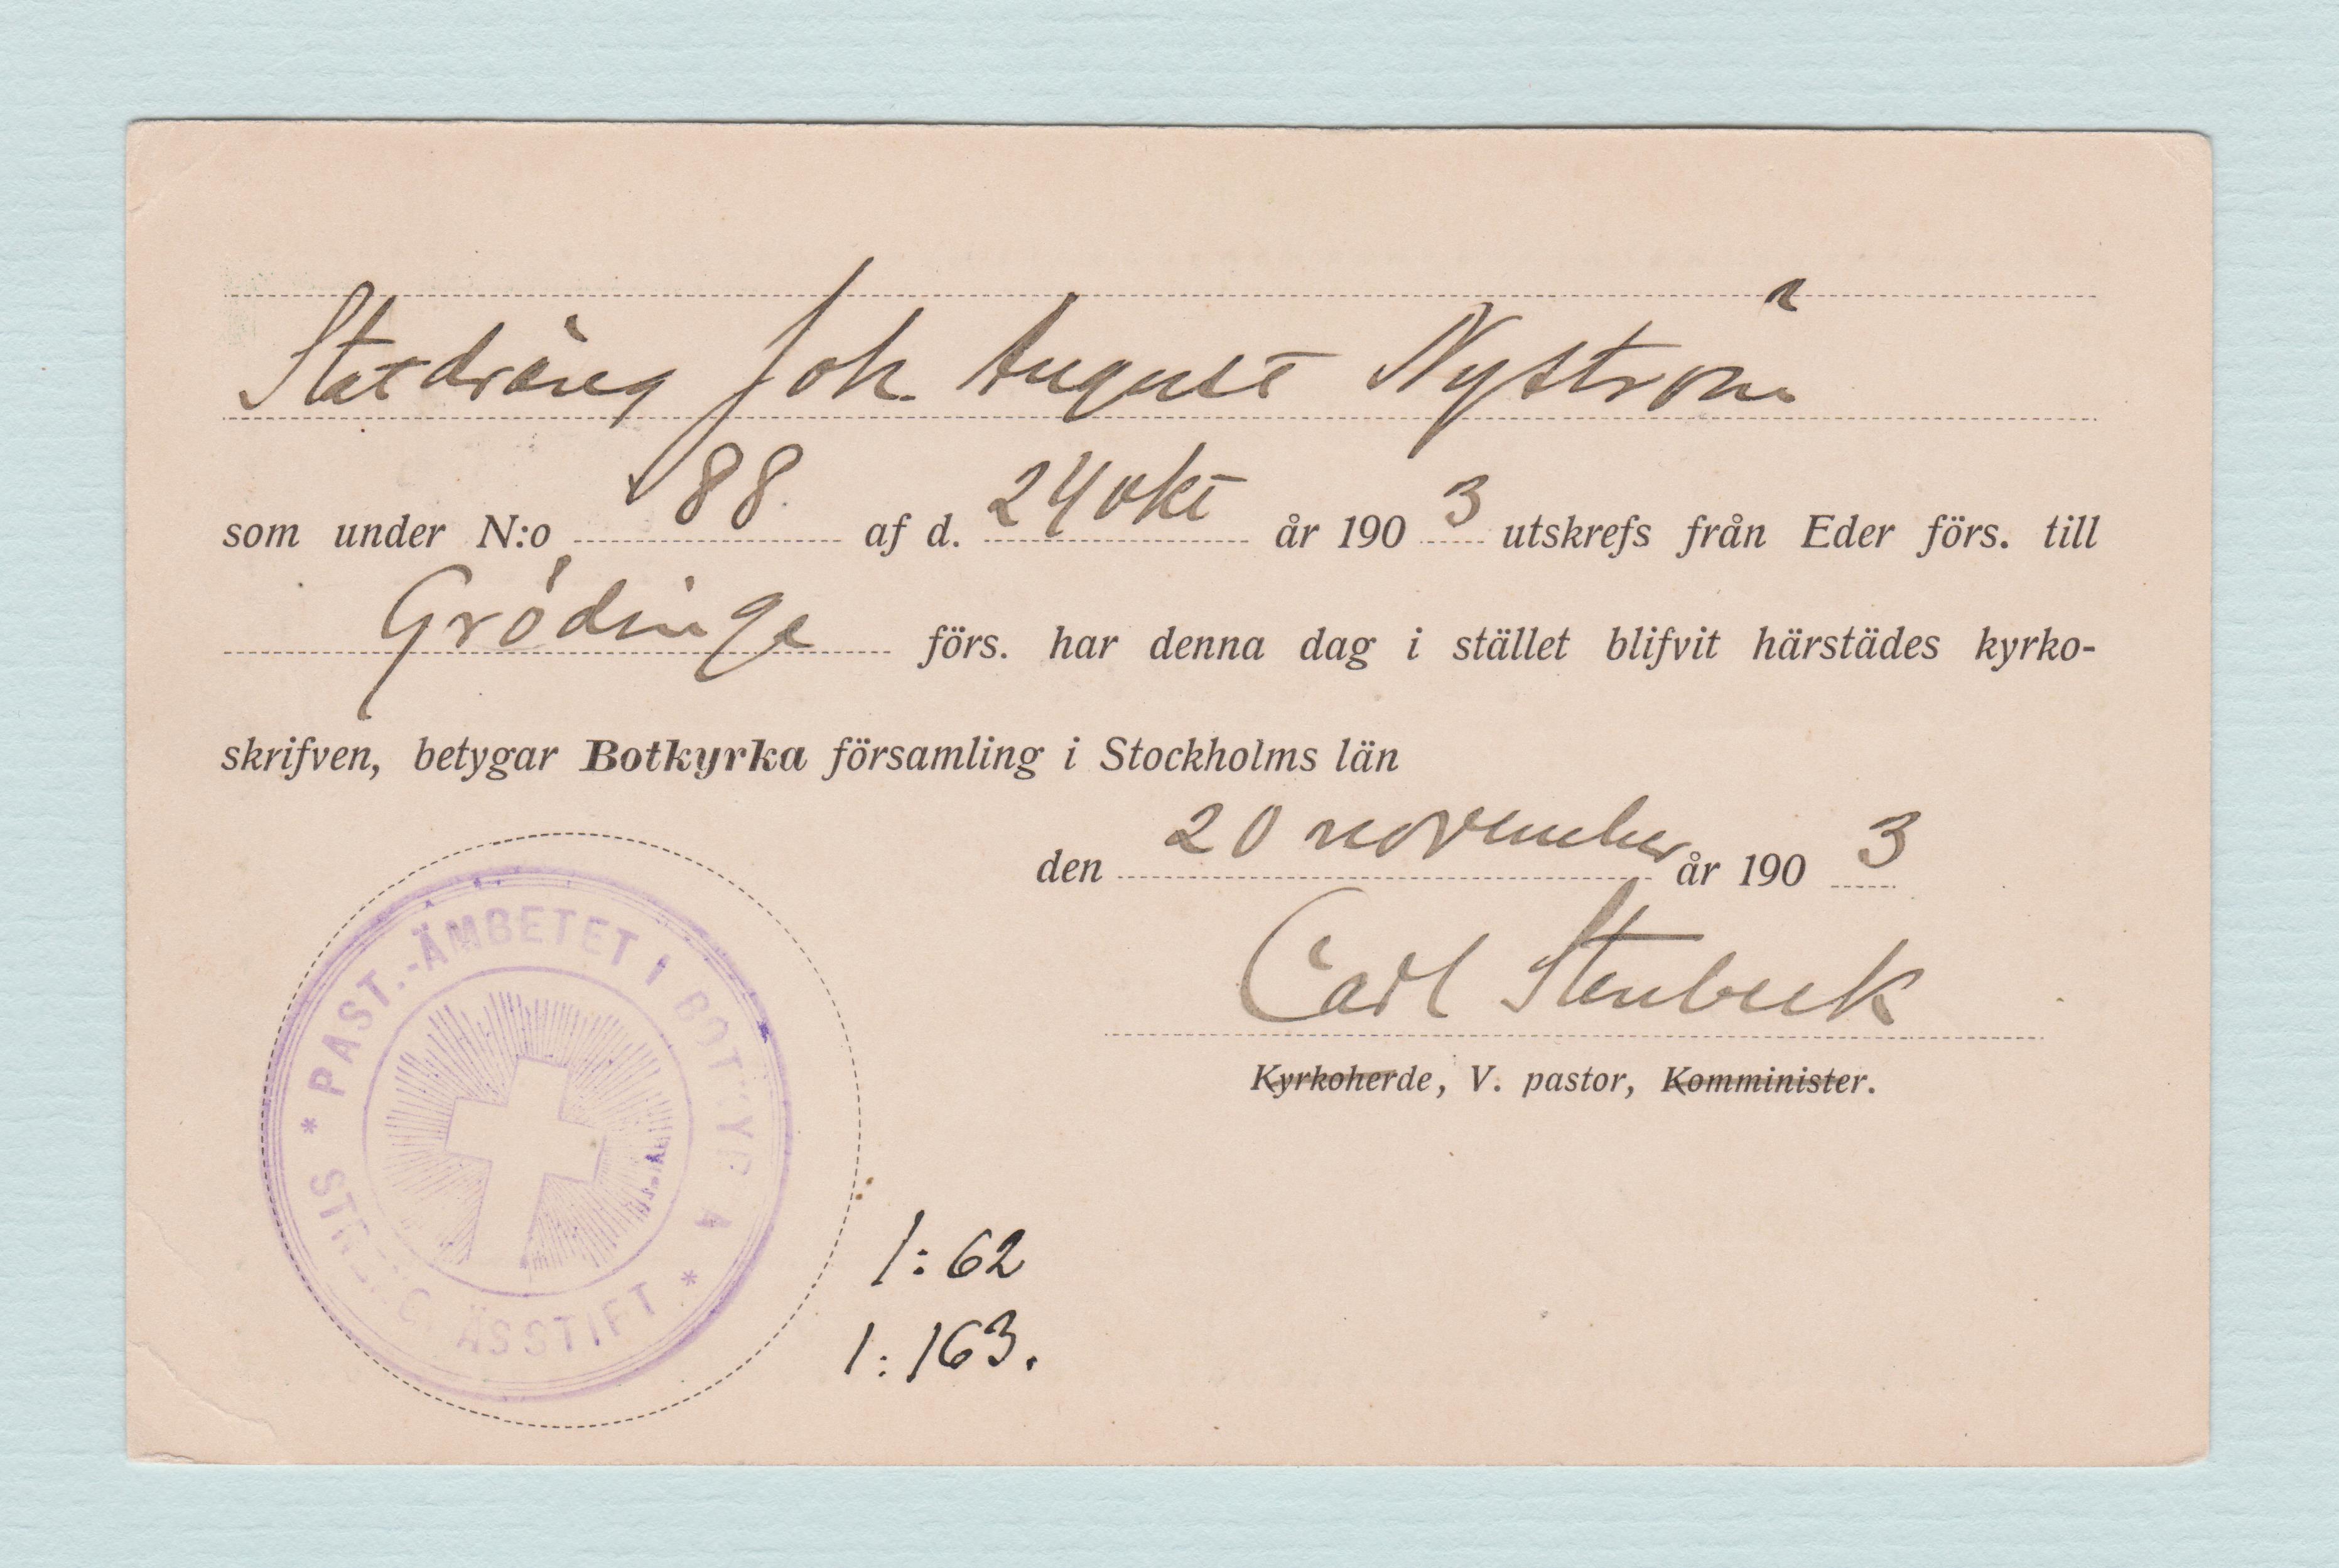 Statdräng Joh. August Nyström
som under N:o 88. af d. 24 okt år 1903 utskrefs från Eder förs. till
Grödinge förs. har denna dag i stället blifvit härstädes kyrko-
skrifven, betygar Botkyrka församling i Stockholms län
den 20 november år 1903
Carl Stenbeck
Kyrkoherde, V. pastor, Komminister.
* PAST.-ÄMBETET I BOTKYRKA *
STRENGNÄSSTIFT
1:62
1:163.